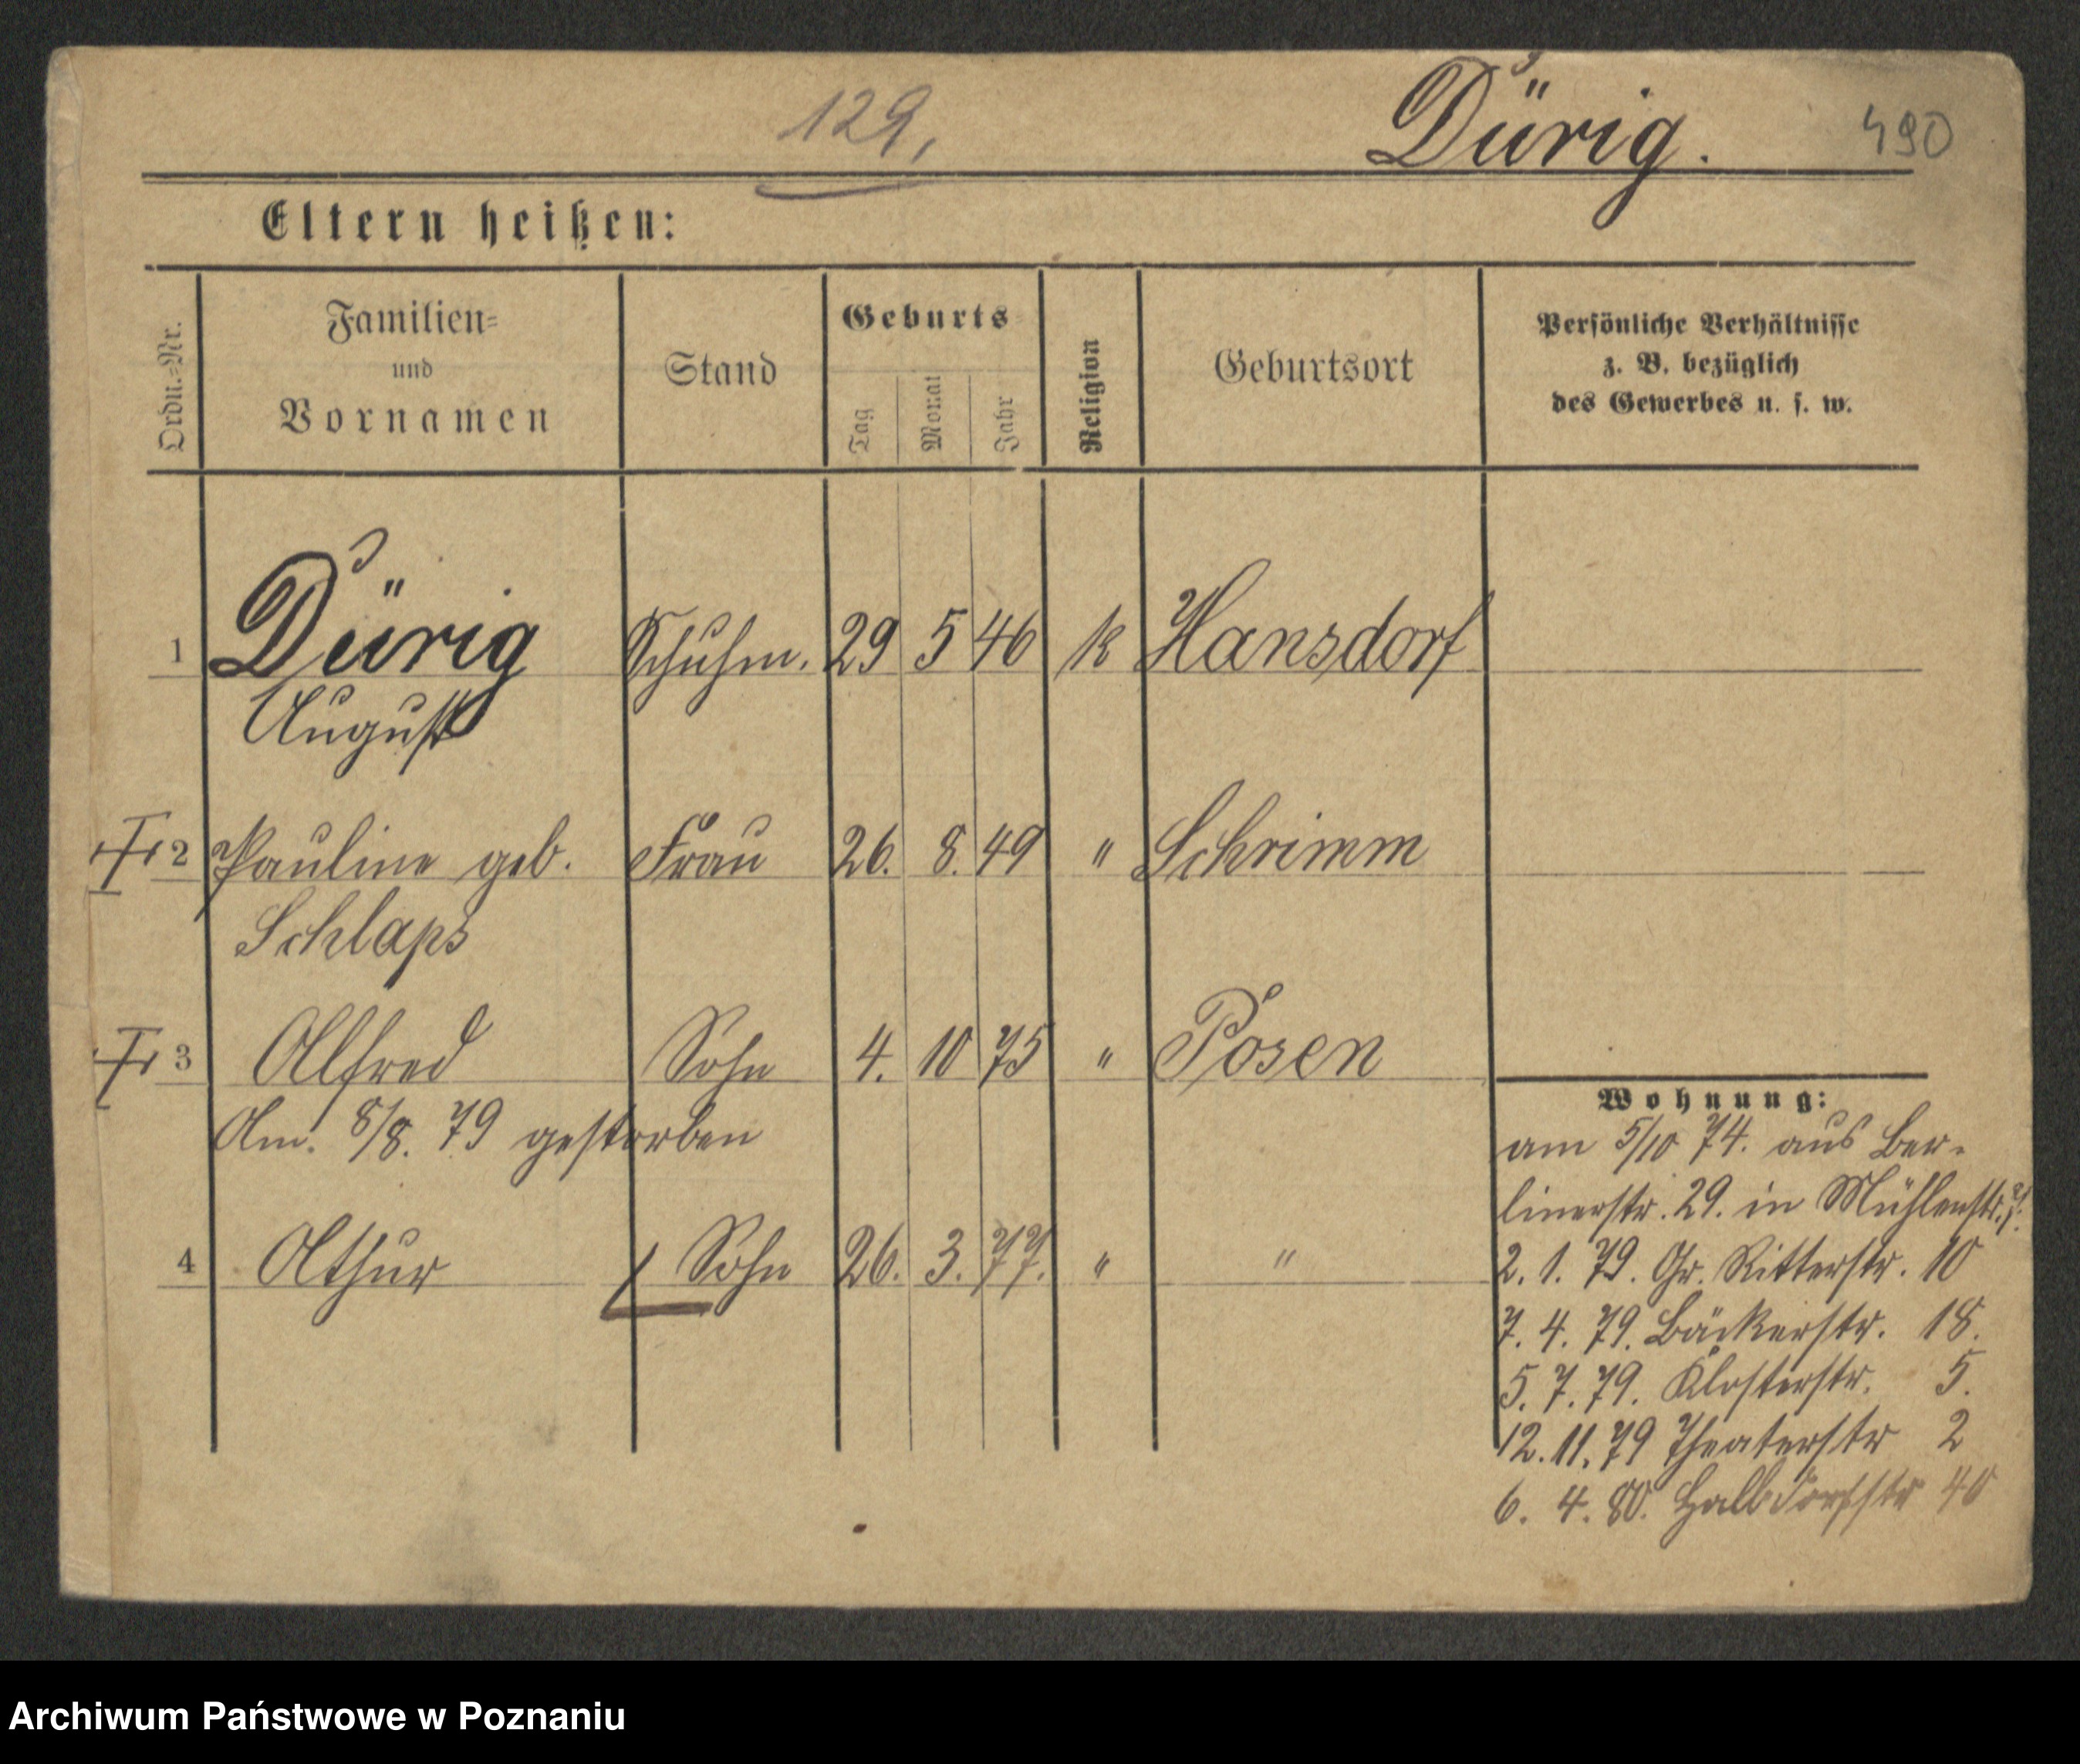 129,
Dürig.
490
Eltern heißen:
Ordn.=Nr.
Familien=
und
Vornamen
Stand
Geburts
Tag
Monat
Jahr
Religion
Geburtsort
Persönliche Verhältnisse
z. B. bezüglich
des Gewerbes u. s. w.
1 Dürig Schuhm. 29 5 46 k Hansdorf
August
2 Pauline geb. Frau 26. 8. 49 " Schrimm
Schlaps
3 Alfred Sohn 4. 10 75 " Posen
Am. 8/8. 79 gestorben
4 Athur Sohn 26. 3. 77. " "
Wohnung:
am 5/10 74. aus Ber-
linerstr. 29. in Mühlenstr. 7.
2. 1. 79. Gr. Ritterstr. 10
7. 4. 79. Bäckerstr. 18.
5. 7. 79. Klosterstr. 5.
12. 11. 79 Theaterstr 2
6. 4. 80. Halbdorfstr 40
Archiwum Państwowe w Poznaniu